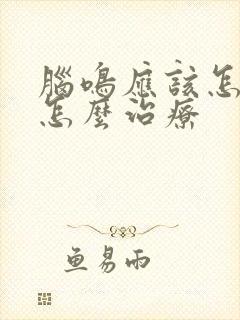 腦鳴應該怎
怎麼治療
魚易雨